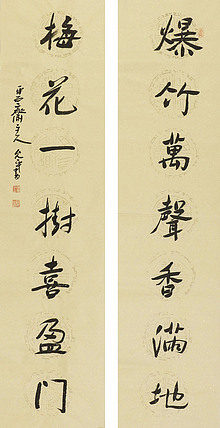 爆竹萬聲香滿地
梅花一樹喜盈门